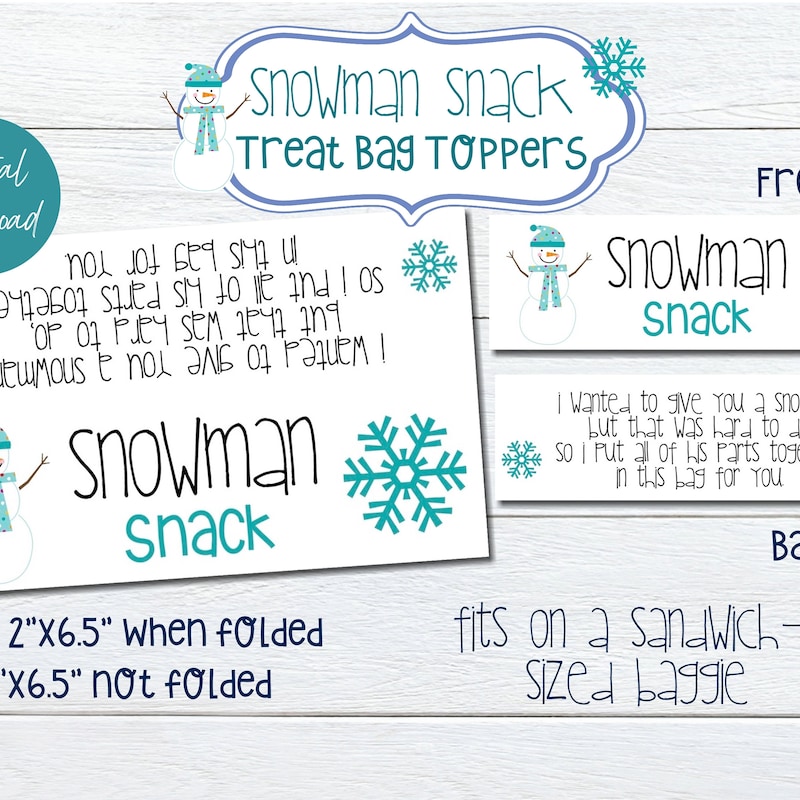 snowman snack
Treat Bag Toppers
I wanted to give you a
but that was hard to do,
so I put all of his parts
in this bag for you.
snowman
snack
snowman
snack
i wanted to give you a
but that was hard to
so i put all of his parts
in this bag for you
2"x6.5" when folded
x6.5" not folded
fits on a sandwich-
sized baggie